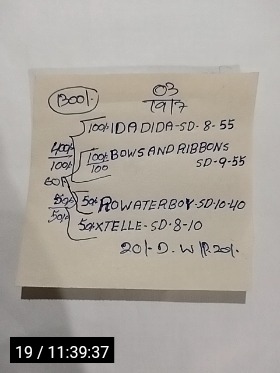 1300/-
03
19/7
100/- IDADIDA-SD-8-55
400/-
100/-
100/-
100
BOWS AND RIBBONS
SD-9-55
50/- ROWATERBOY-SD-10-40
50/-
50/- XTELLE-SD-8-10
20/- D.W/P.20/-
19 / 11:39:37